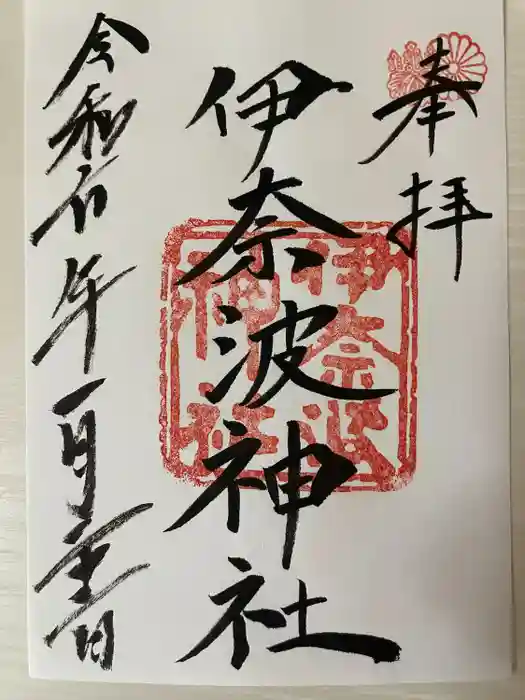 奉拝
伊奈波神社
伊奈波神社
令和 年一月 日